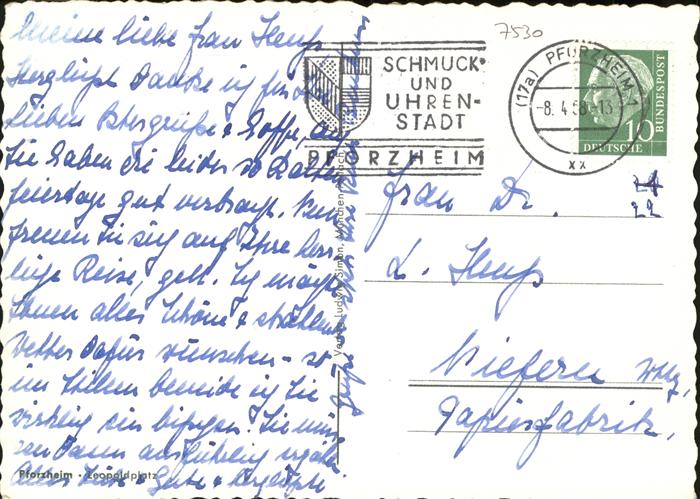 Meine liebe Frau Heuß
Herzlichst Danke ich für die
lieben Ostergrüße & hoffe, daß
Sie haben die leider so kalten
Feiertage gut verbracht. Nun
freuen Sie sich auf Ihre herr-
liche Reise, gell. Ich möchte
Ihnen alles Schöne & strahlend
Wetter dafür wünschen - so
im Stillen beneide ich Sie
wirklich ein bißchen! Sie müs-
sen dann ausführlich erzählen
Alles Liebe & Gute &
7530
SCHMUCK-
UND
UHREN-
STADT
PFORZHEIM
(17a) PFORZHEIM 1
-8. 4. 58.-13
xx
10
DEUTSCHE
BUNDESPOST
22
Frau Dr.
L. Heuß
Niefern
Papierfabrik.
Verlag Ludwig Simon, München-Pullach
Pforzheim · Leopoldplatz